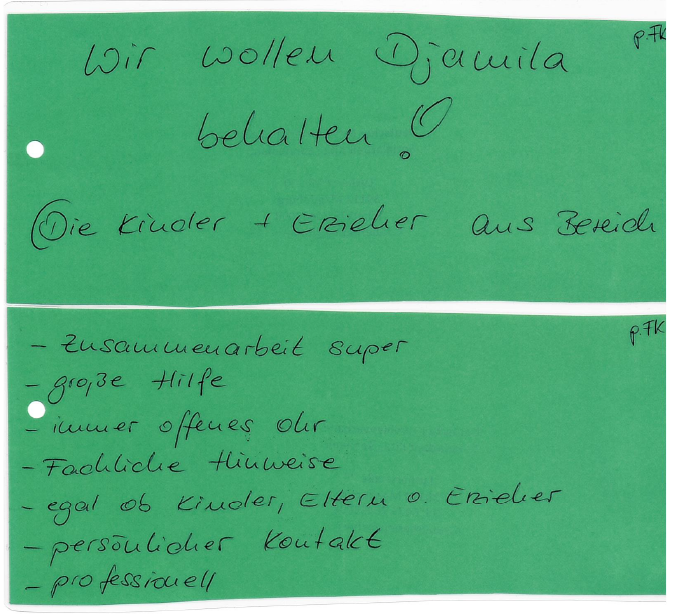 p.FK
Wir wollen Djamila
behalten !
Die Kinder + Erzieher aus Bereich
p.FK
- Zusammenarbeit super
- große Hilfe
- immer offenes Ohr
- Fachliche Hinweise
- egal ob Kinder, Eltern o. Erzieher
- persönlicher Kontakt
- professionell